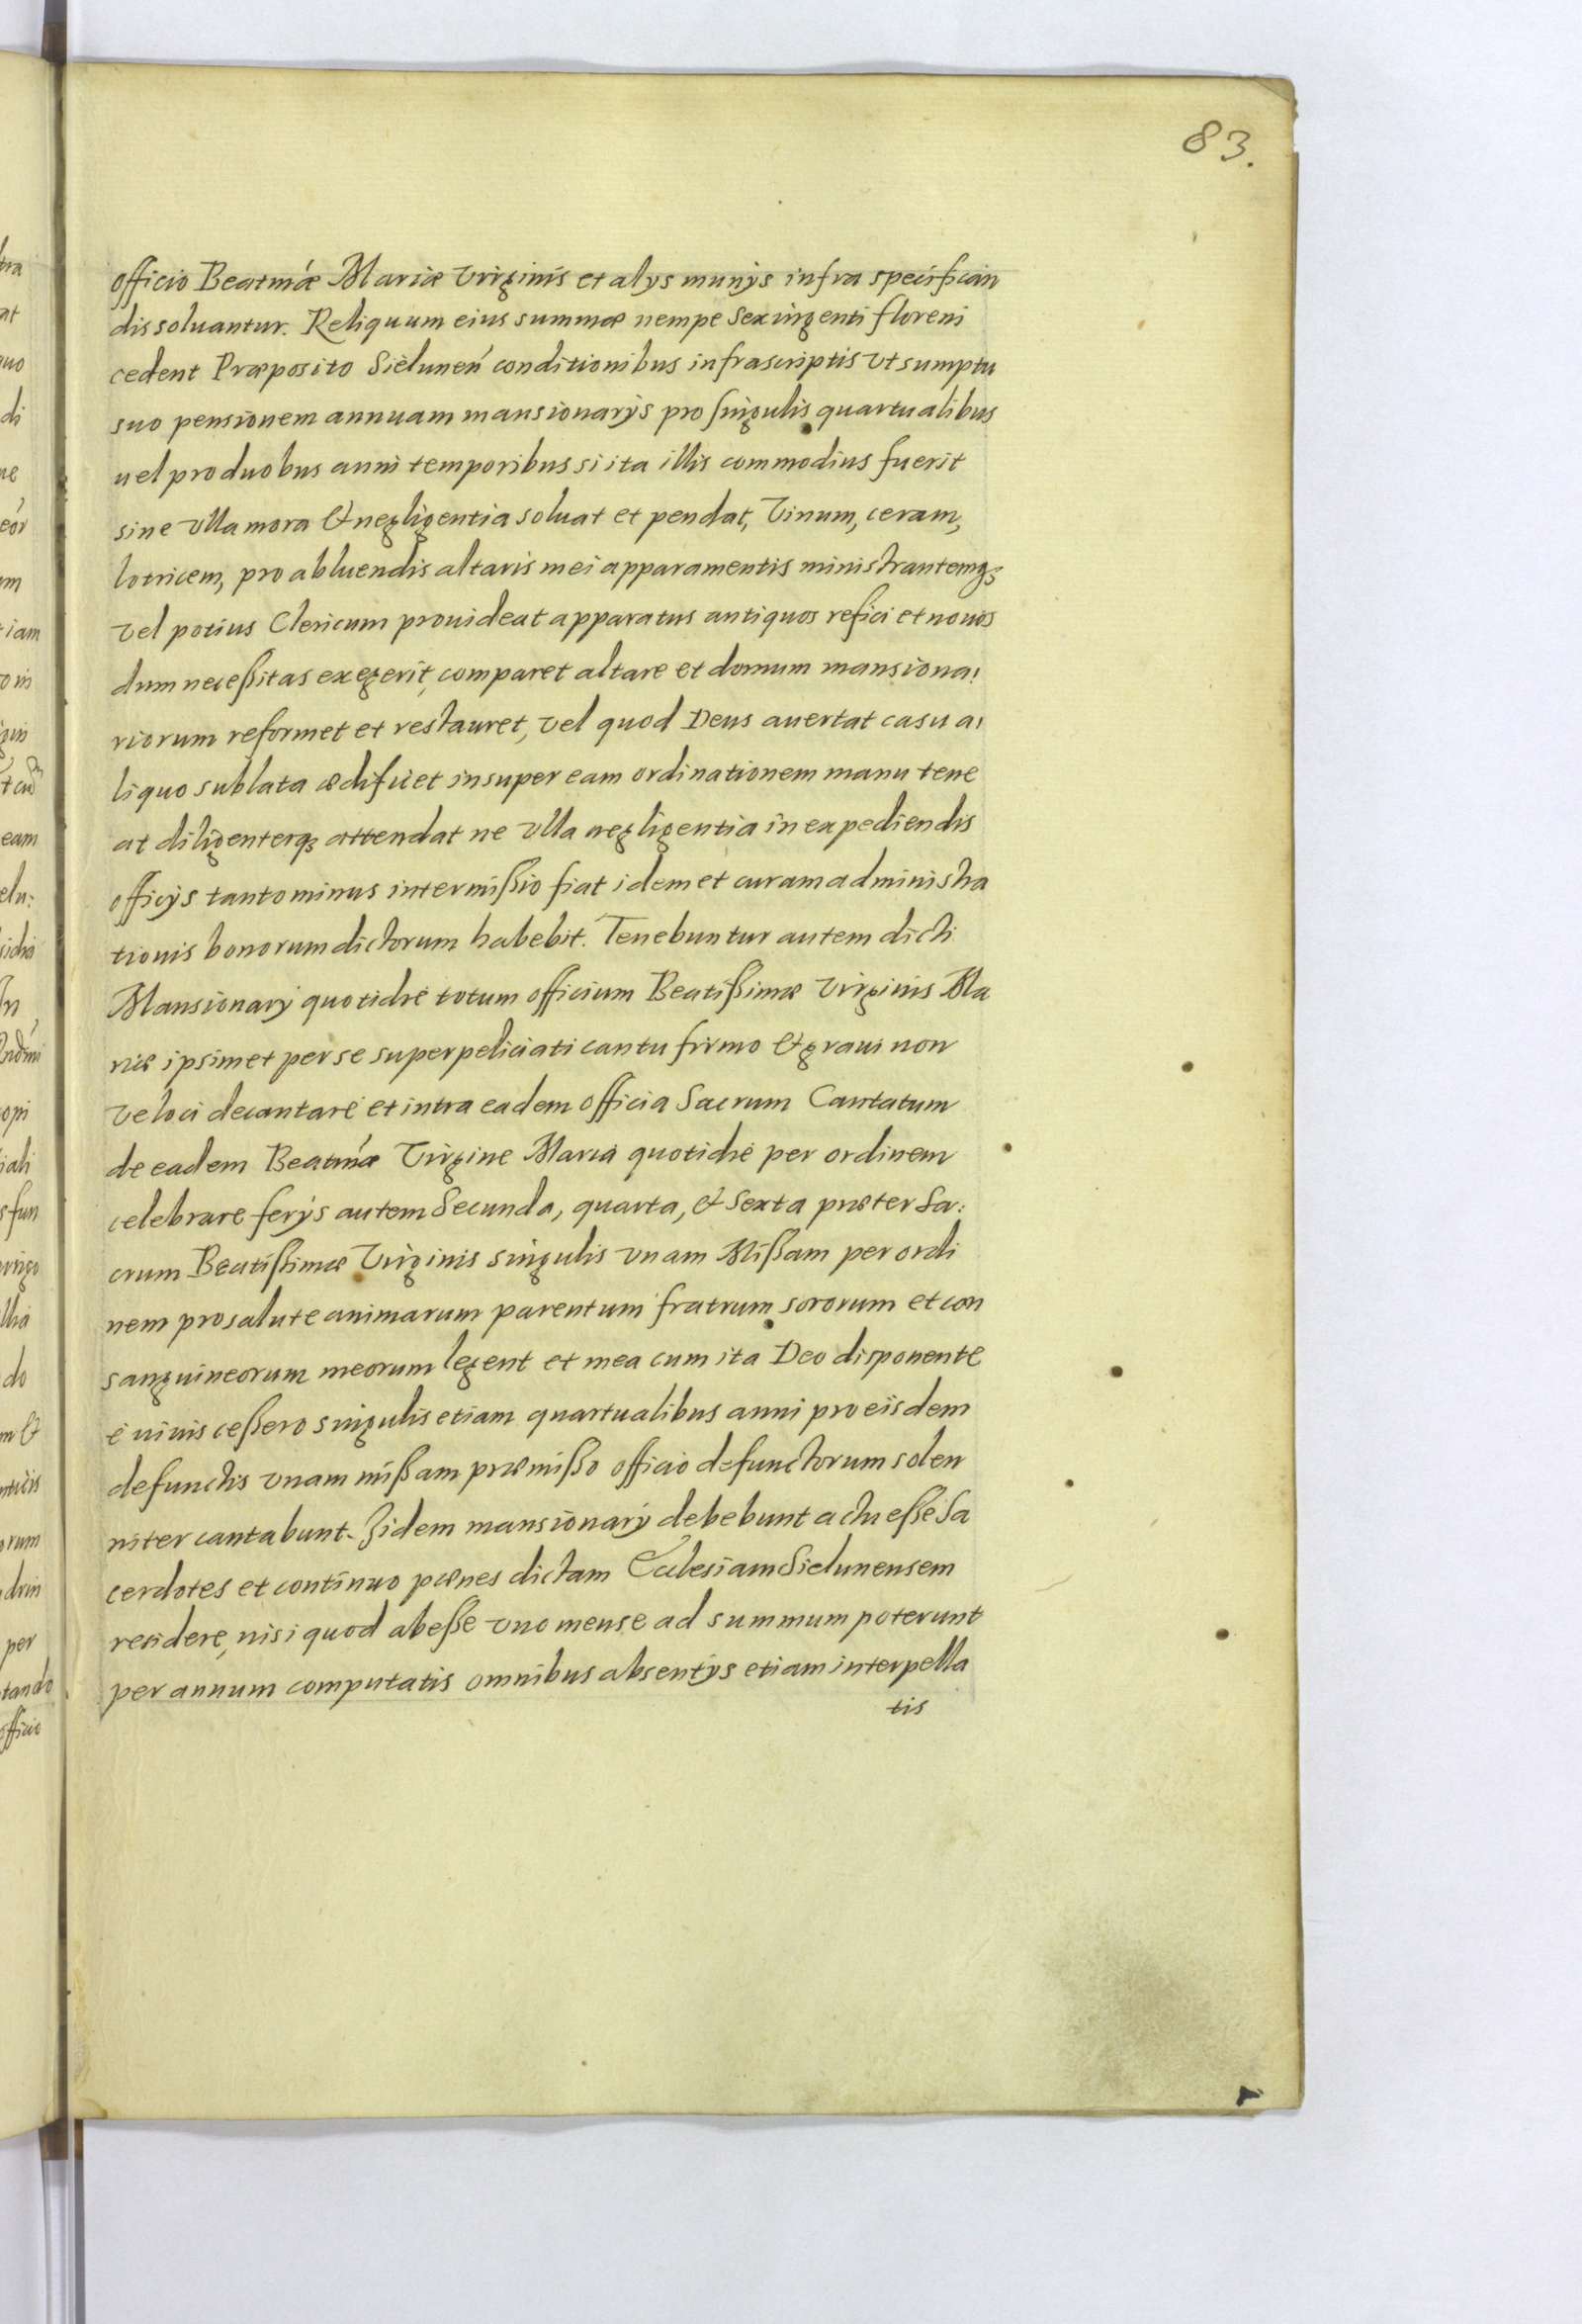 83.
officio Beatmáe Mariæ Virginis et alys munys infra specifican
dis soluantur. Reliquum eius summæ nempe Sexingenti floreni
cedent Præposito Sielunen conditionibus infrascriptis Vt sumptu
suo pensionem annuam mansionarys pro singulis quartualibus
uel pro duobus anni temporibus si ita illis commodius fuerit
sine Vlla mora & negligentia soluat et pendat, Vinum, ceram,
lotricem, pro abluendis altaris mei apparamentis ministrantemqȝ
Vel potius Clericum prouideat apparatus antiquos refici et nouos
dum neceßitas exegerit, comparet altare et domum mansiona:
riorum reformet et restauret, Vel quod Deus auertat casu a:
liquo sublata ædificet insuper eam ordinationem manu tene
at diligenterqȝ attendat ne Vlla negligentia in expediendis
officys tanto minus intermißio fiat idem et curam administra
tionis bonorum dictorum habebit. Tenebuntur autem dicti
Mansionary quotidie totum officium Beatißimæ Virginis Ma
riæ ipsimet per se superpeliciati cantu firmo & graui non
Veloci decantare et intra eadem officia Sacrum Cantatum
de eadem Beatmáe Virgine Maria quotidie per ordinem
celebrare ferys autem Secunda, quarta, & Sexta præter Sa:
crum Beatißimæ Virginis singulis Vnam Mißam per ordi
nem pro salute animarum parentum fratrum sororum et con
sanguineorum meorum legent et mea cum ita Deo disponente
è uiuis ceßero singulis etiam quartualibus anni pro eiisdem
defunctis Vnam mißam præmißo officio defunctorum solen
niter cantabunt. Iidem mansionary debebunt actu eße Sa
cerdotes et continuo pænes dictam Ecclesiam Sielunensem
residere, nisi quod abeße Vno mense ad summum poterunt
per annum computatis omnibus absentys etiam interpella
tis